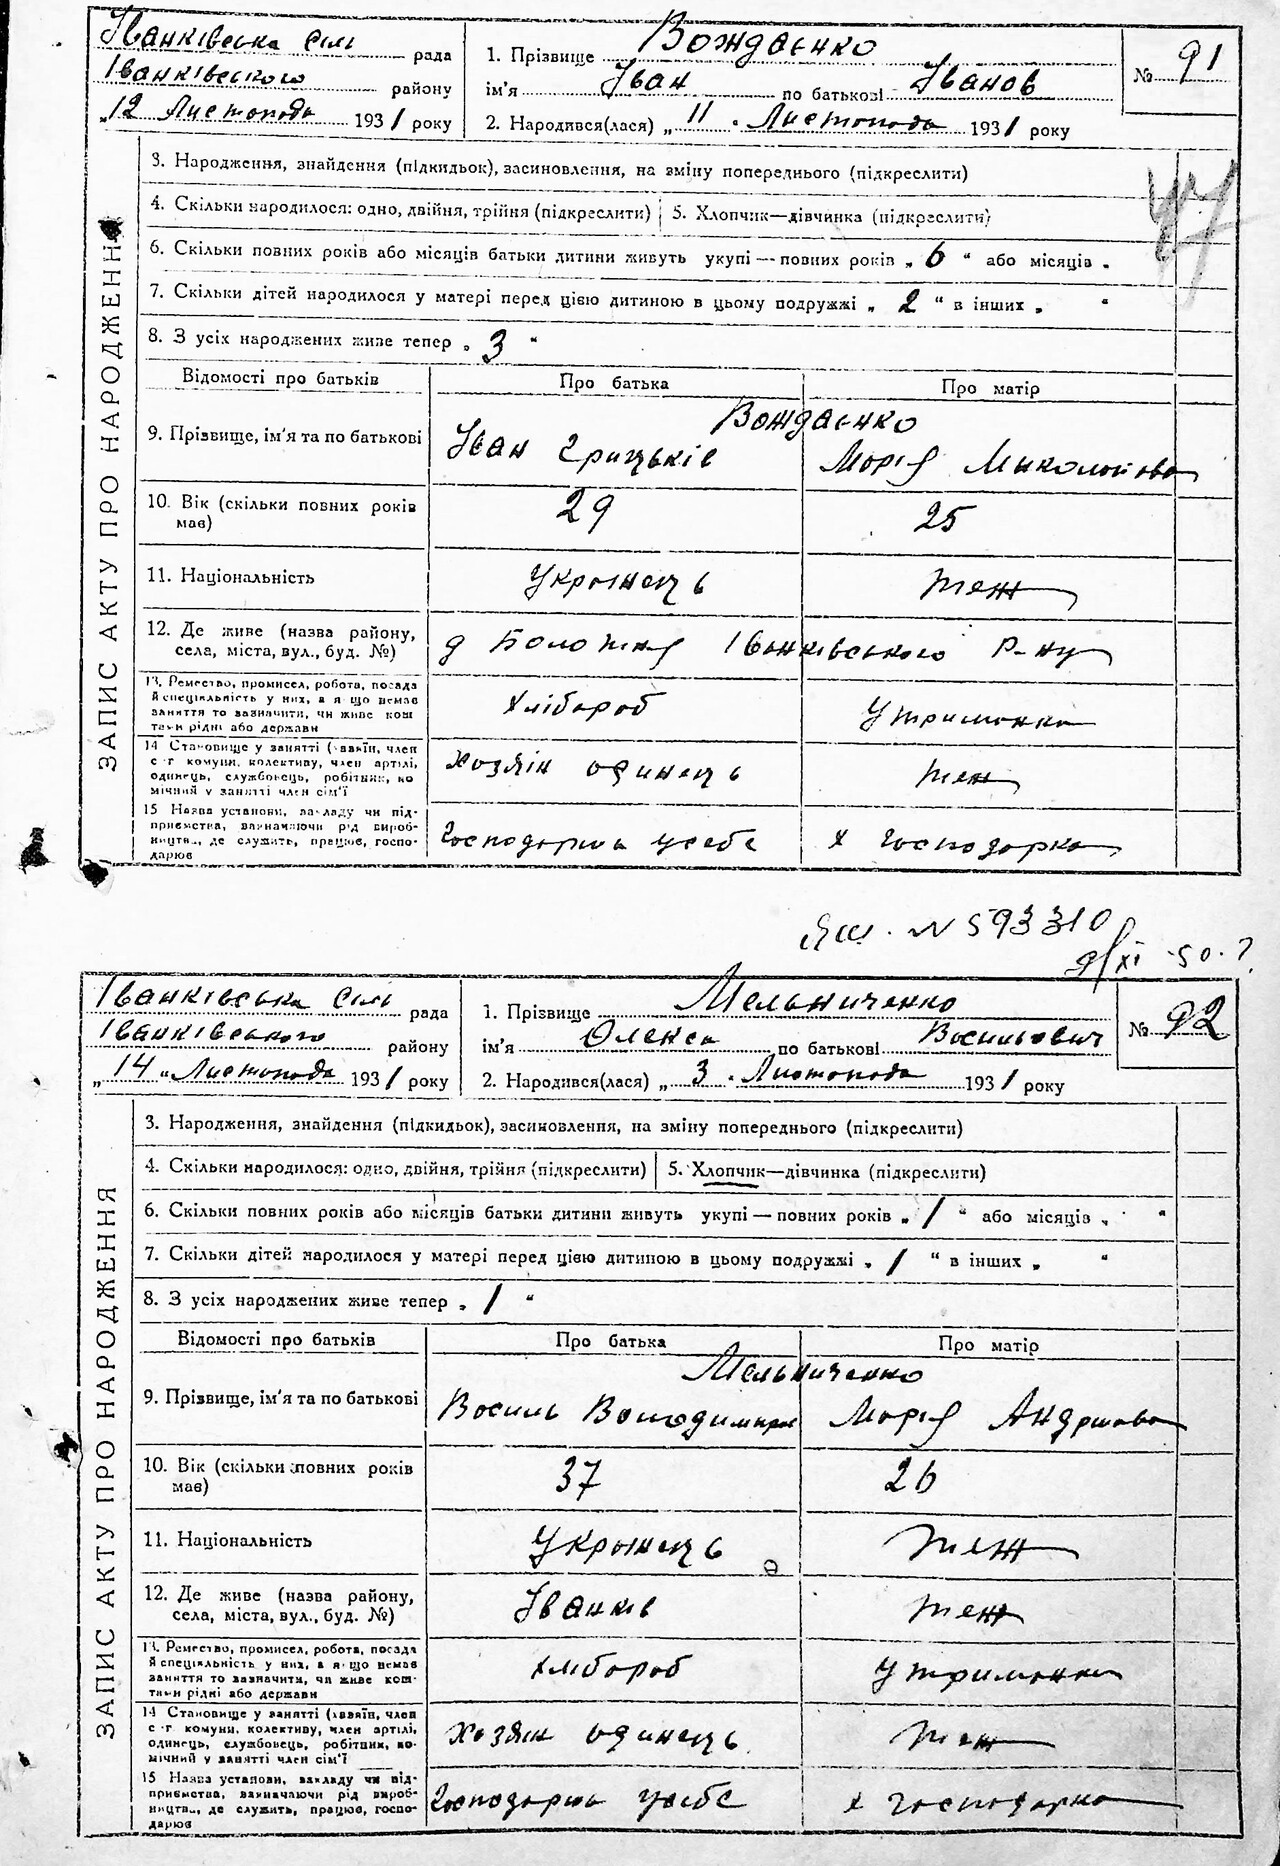 Іванківська сіль рада
Іванківського району
„12 Листопада 1931 року
1. Прізвище Вождаєнко
ім'я Іван по батькові Іванов
2. Народився(лася) „11 „ Листопада 1931 року
№ 91
47
ЗАПИС АКТУ ПРО НАРОДЖЕННЯ
3. Народження, знайдення (підкидьок), засиновлення, на зміну попереднього (підкреслити)
4. Скільки народилося: одно, двійня, трійня (підкреслити) 5. Хлопчик—дівчинка (підкреслити)
6. Скільки повних років або місяців батьки дитини живуть укупі — повних років „ 6 “ або місяців „
7. Скільки дітей народилося у матері перед цією дитиною в цьому подружжі „ 2 “ в інших „ “
8. З усіх народжених живе тепер „ 3 “
Відомості про батьків Про батька Про матір
Вождаєнко
9. Прізвище, ім'я та по батькові Іван Грицьків Марія Миколаєва
10. Вік (скільки повних років має) 29 25
11. Національність Українець теж
12. Де живе (назва району, села, міста, вул., буд. №) Іванківського Р-ну
13. Ремество, промисел, робота, посада й спеціяльність у них, а якщо немає заняття то зазначити, чи живе коштами рідні або держави Хлібороб Утриманка
14 Становище у занятті (хазяїн, член с-г комуни, колективу, член артілі, одинець, службовець, робітник, помічний у занятті член сім'ї Хозяїн одинець теж
15 Назва установи, закладу чи підприємства, зазначаючи рід виробництва, де служить, працює, господарює Господарша у себе х господарка
№ 593310
9/XI 50.
Іванківська сіль рада
Іванківського району
„14 „ Листопада 1931 року
1. Прізвище Мельниченко
ім'я Олекса по батькові Васильович
2. Народився(лася) „ 3 „ Листопада 1931 року
№ 92
ЗАПИС АКТУ ПРО НАРОДЖЕННЯ
3. Народження, знайдення (підкидьок), засиновлення, на зміну попереднього (підкреслити)
4. Скільки народилося: одно, двійня, трійня (підкреслити) 5. Хлопчик—дівчинка (підкреслити)
6. Скільки повних років або місяців батьки дитини живуть укупі — повних років „ 1 “ або місяців „ “
7. Скільки дітей народилося у матері перед цією дитиною в цьому подружжі „ 1 “ в інших „ “
8. З усіх народжених живе тепер „ 1 “
Відомості про батьків Про батька Про матір
Мельниченко
9. Прізвище, ім'я та по батькові Василь Володимиров Марія Андріїва
10. Вік (скільки повних років має) 37 26
11. Національність Українець теж
12. Де живе (назва району, села, міста, вул., буд. №) Іванків теж
13. Ремество, промисел, робота, посада й спеціяльність у них, а якщо немає заняття то зазначити, чи живе коштами рідні або держави хлібороб утриманка
14 Становище у занятті (хазяїн, член с-г комуни, колективу, член артілі, одинець, службовець, робітник, помічний у занятті член сім'ї Хозяїн одинець теж
15 Назва установи, закладу чи підприємства, зазначаючи рід виробництва, де служить, працює, господарює Господарша у себе х господарка